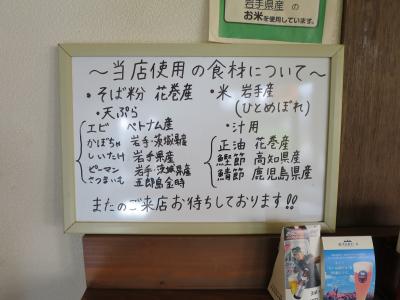 岩手県産 の
お米を使用しています。
～当店使用の食材について～
・そば粉 花巻産
・天ぷら
エビ ベトナム産
かぼちゃ 岩手・茨城県産
しいたけ 岩手県産
ピーマン 岩手・茨城県産
さつまいも 五郎島金時
・米 岩手産
(ひとめぼれ)
・汁用
正油 花巻産
鰹節 高知県産
鯖節 鹿児島県産
またのご来店お待ちしております!!